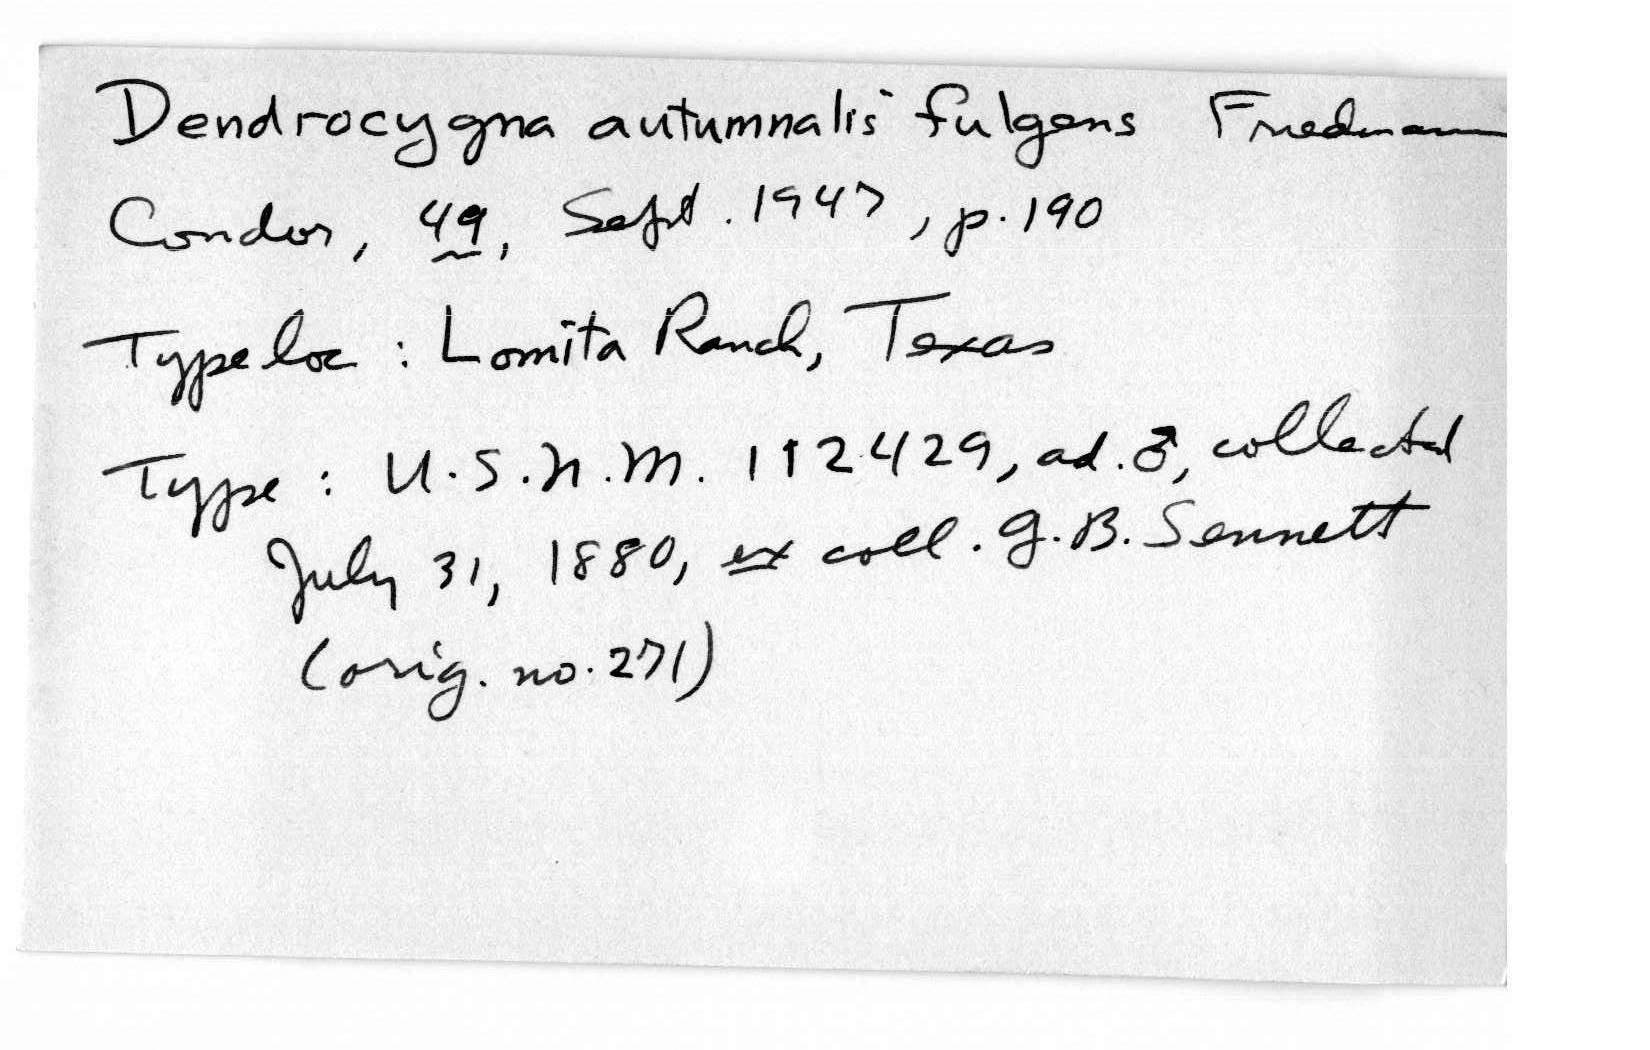 Dendrocygna autumnalis fulgens Friedmann
Condor, 49, Sept. 1947, p. 190
Type loc : Lomita Ranch, Texas
Type : U.S.N.M. 112429, ad. ♂, collected
July 31, 1880, ex coll. G.B. Sennett
(orig. no. 271)